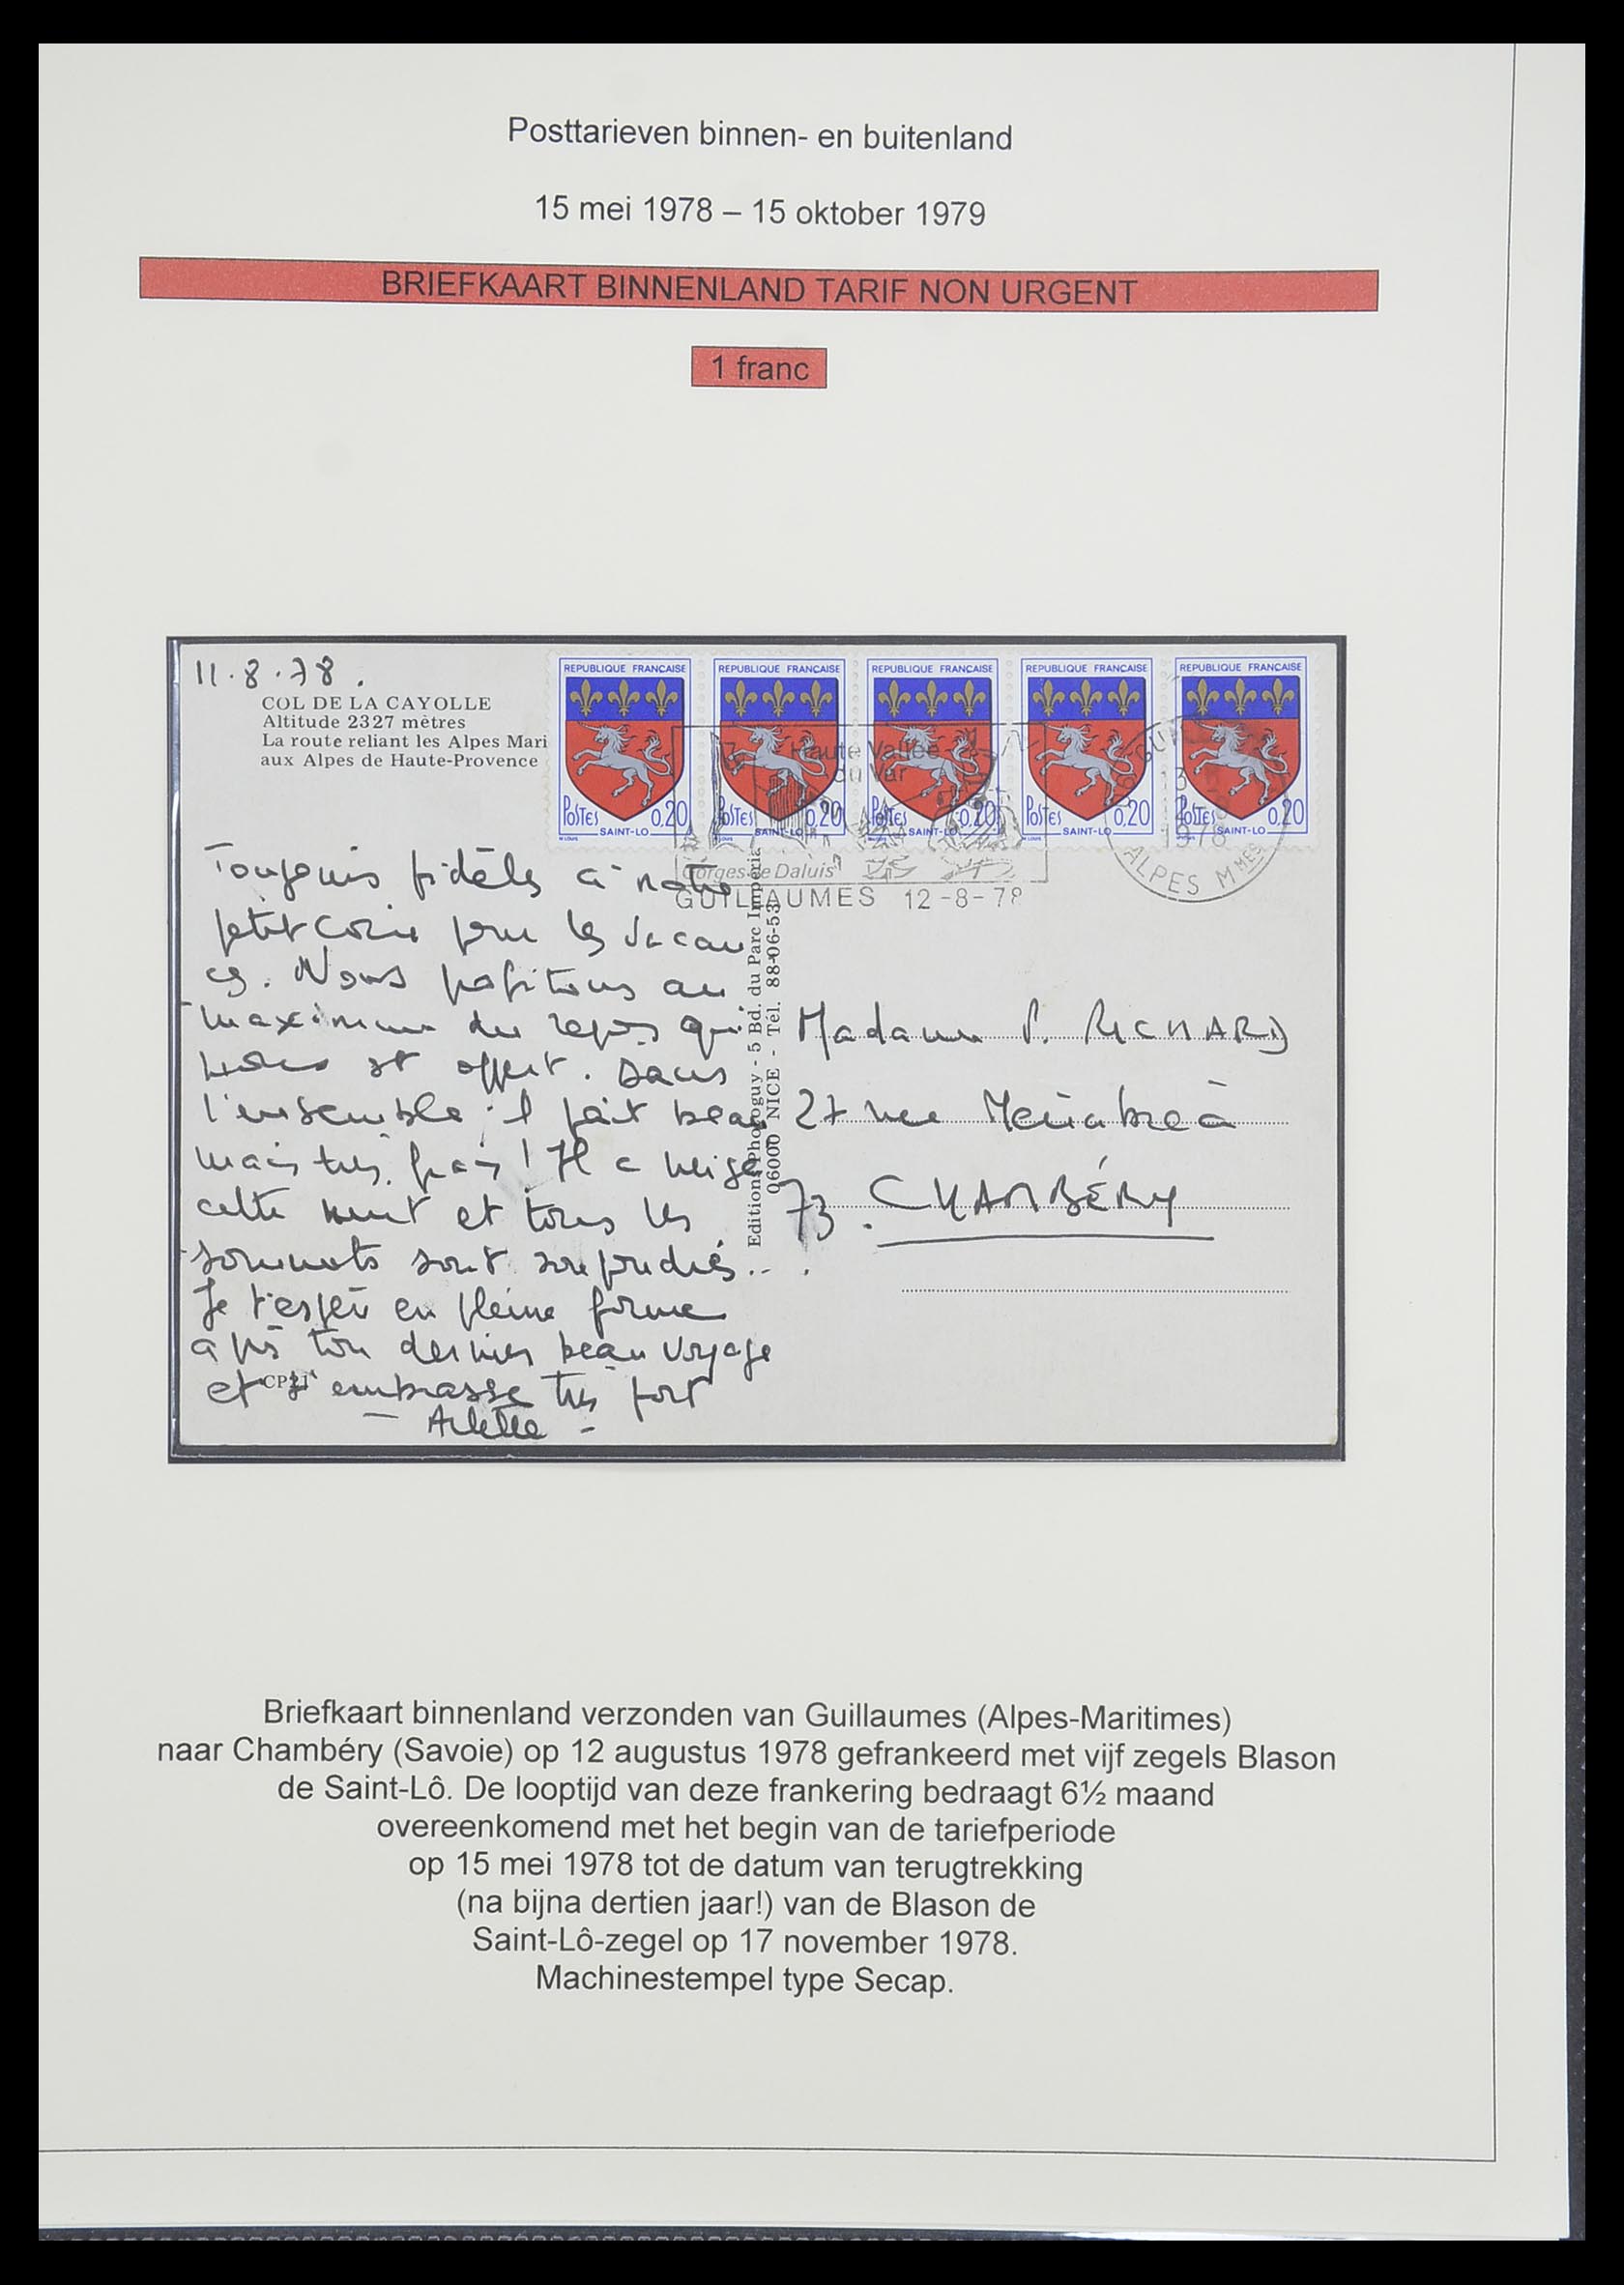 Posttarieven binnen- en buitenland
15 mei 1978 – 15 oktober 1979
BRIEFKAART BINNENLAND TARIF NON URGENT
1 franc
11.8.78.
COL DE LA CAYOLLE
Altitude 2327 mètres
La route reliant les Alpes Mari
aux Alpes de Haute-Provence
REPUBLIQUE FRANCAISE
POSTES 0,20
SAINT-LO
REPUBLIQUE FRANCAISE
POSTES 0,20
SAINT-LO
REPUBLIQUE FRANCAISE
POSTES 0,20
SAINT-LO
REPUBLIQUE FRANCAISE
POSTES 0,20
SAINT-LO
REPUBLIQUE FRANCAISE
POSTES 0,20
SAINT-LO
Haute Vallée
du Var
Gorges de Daluis
GUILLAUMES 12-8-78
1978
ALPES MMES
Toujours fidèles à notre
petit coin pour les vacan
ces. Nous profitons au
maximum du repos qui
nous est offert. Dans
l'ensemble il fait beau
mais très frais! Il a neigé
cette nuit et tous les
sommets sont saupoudrés...
Je t'espère en pleine forme
après ton dernier beau voyage
et t'embrasse très fort
- Arlette -
CP21
Editions Photoguy - 5 Bd. du Parc Impéria
06000 NICE - Tél. 88-06-53
Madame P. RICHARD
27 rue Ménabréa
73. CHAMBÉRY
Briefkaart binnenland verzonden van Guillaumes (Alpes-Maritimes)
naar Chambéry (Savoie) op 12 augustus 1978 gefrankeerd met vijf zegels Blason
de Saint-Lô. De looptijd van deze frankering bedraagt 6½ maand
overeenkomend met het begin van de tariefperiode
op 15 mei 1978 tot de datum van terugtrekking
(na bijna dertien jaar!) van de Blason de
Saint-Lô-zegel op 17 november 1978.
Machinestempel type Secap.